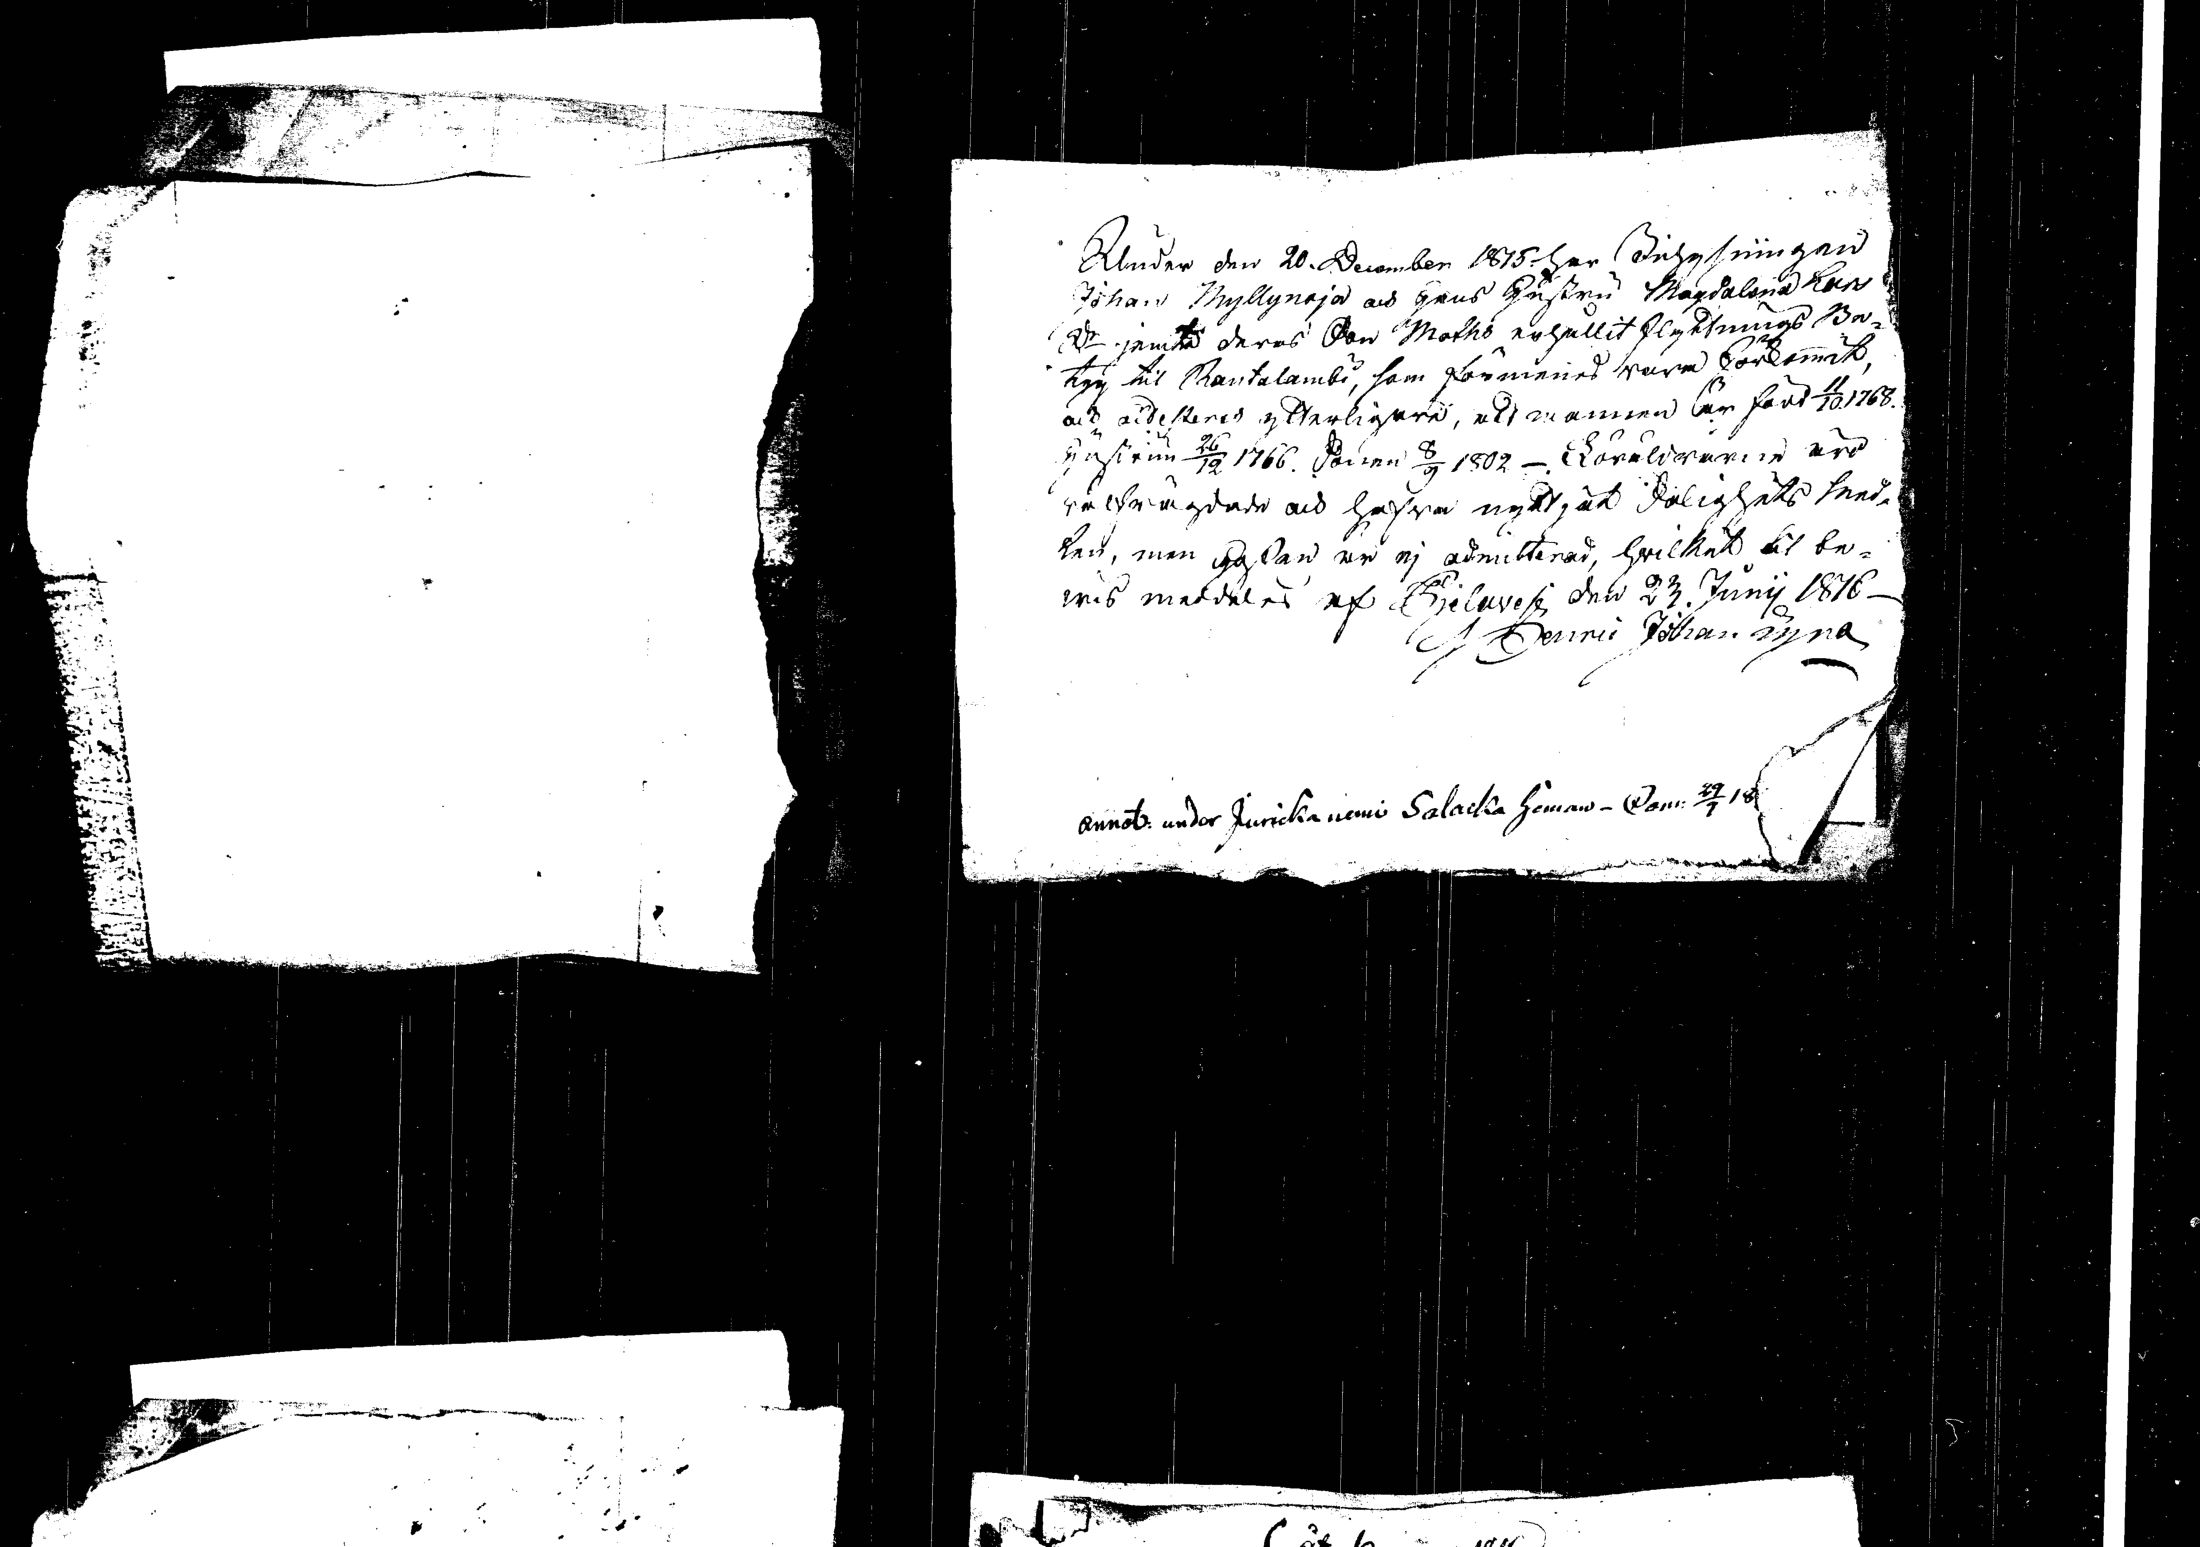 Under den 20. December 1815 har Inhysningen
Johan Myllynoja och hans Hustru Magdalena Lars
Dr jemte deras Son Maths erhållit flyttnings Be=
tyg till Rautalambi, som förmenes vara förkommit,
och attesteras ytterligare, att mannen är född 11/10 1768.
hustrun 26/12 1766. Sonen 8/9 1802 — Föräldrarne äro
välfrägdade och hafva nyttjat Salighets Med=
len, men gossen är ej admitterad, hvilket til be=
vis meddeles af Kjelavesi den 23. Junij 1816 —
Henric Johan
annot. under Jurickaniemi Salacka hemman - 29/7 18